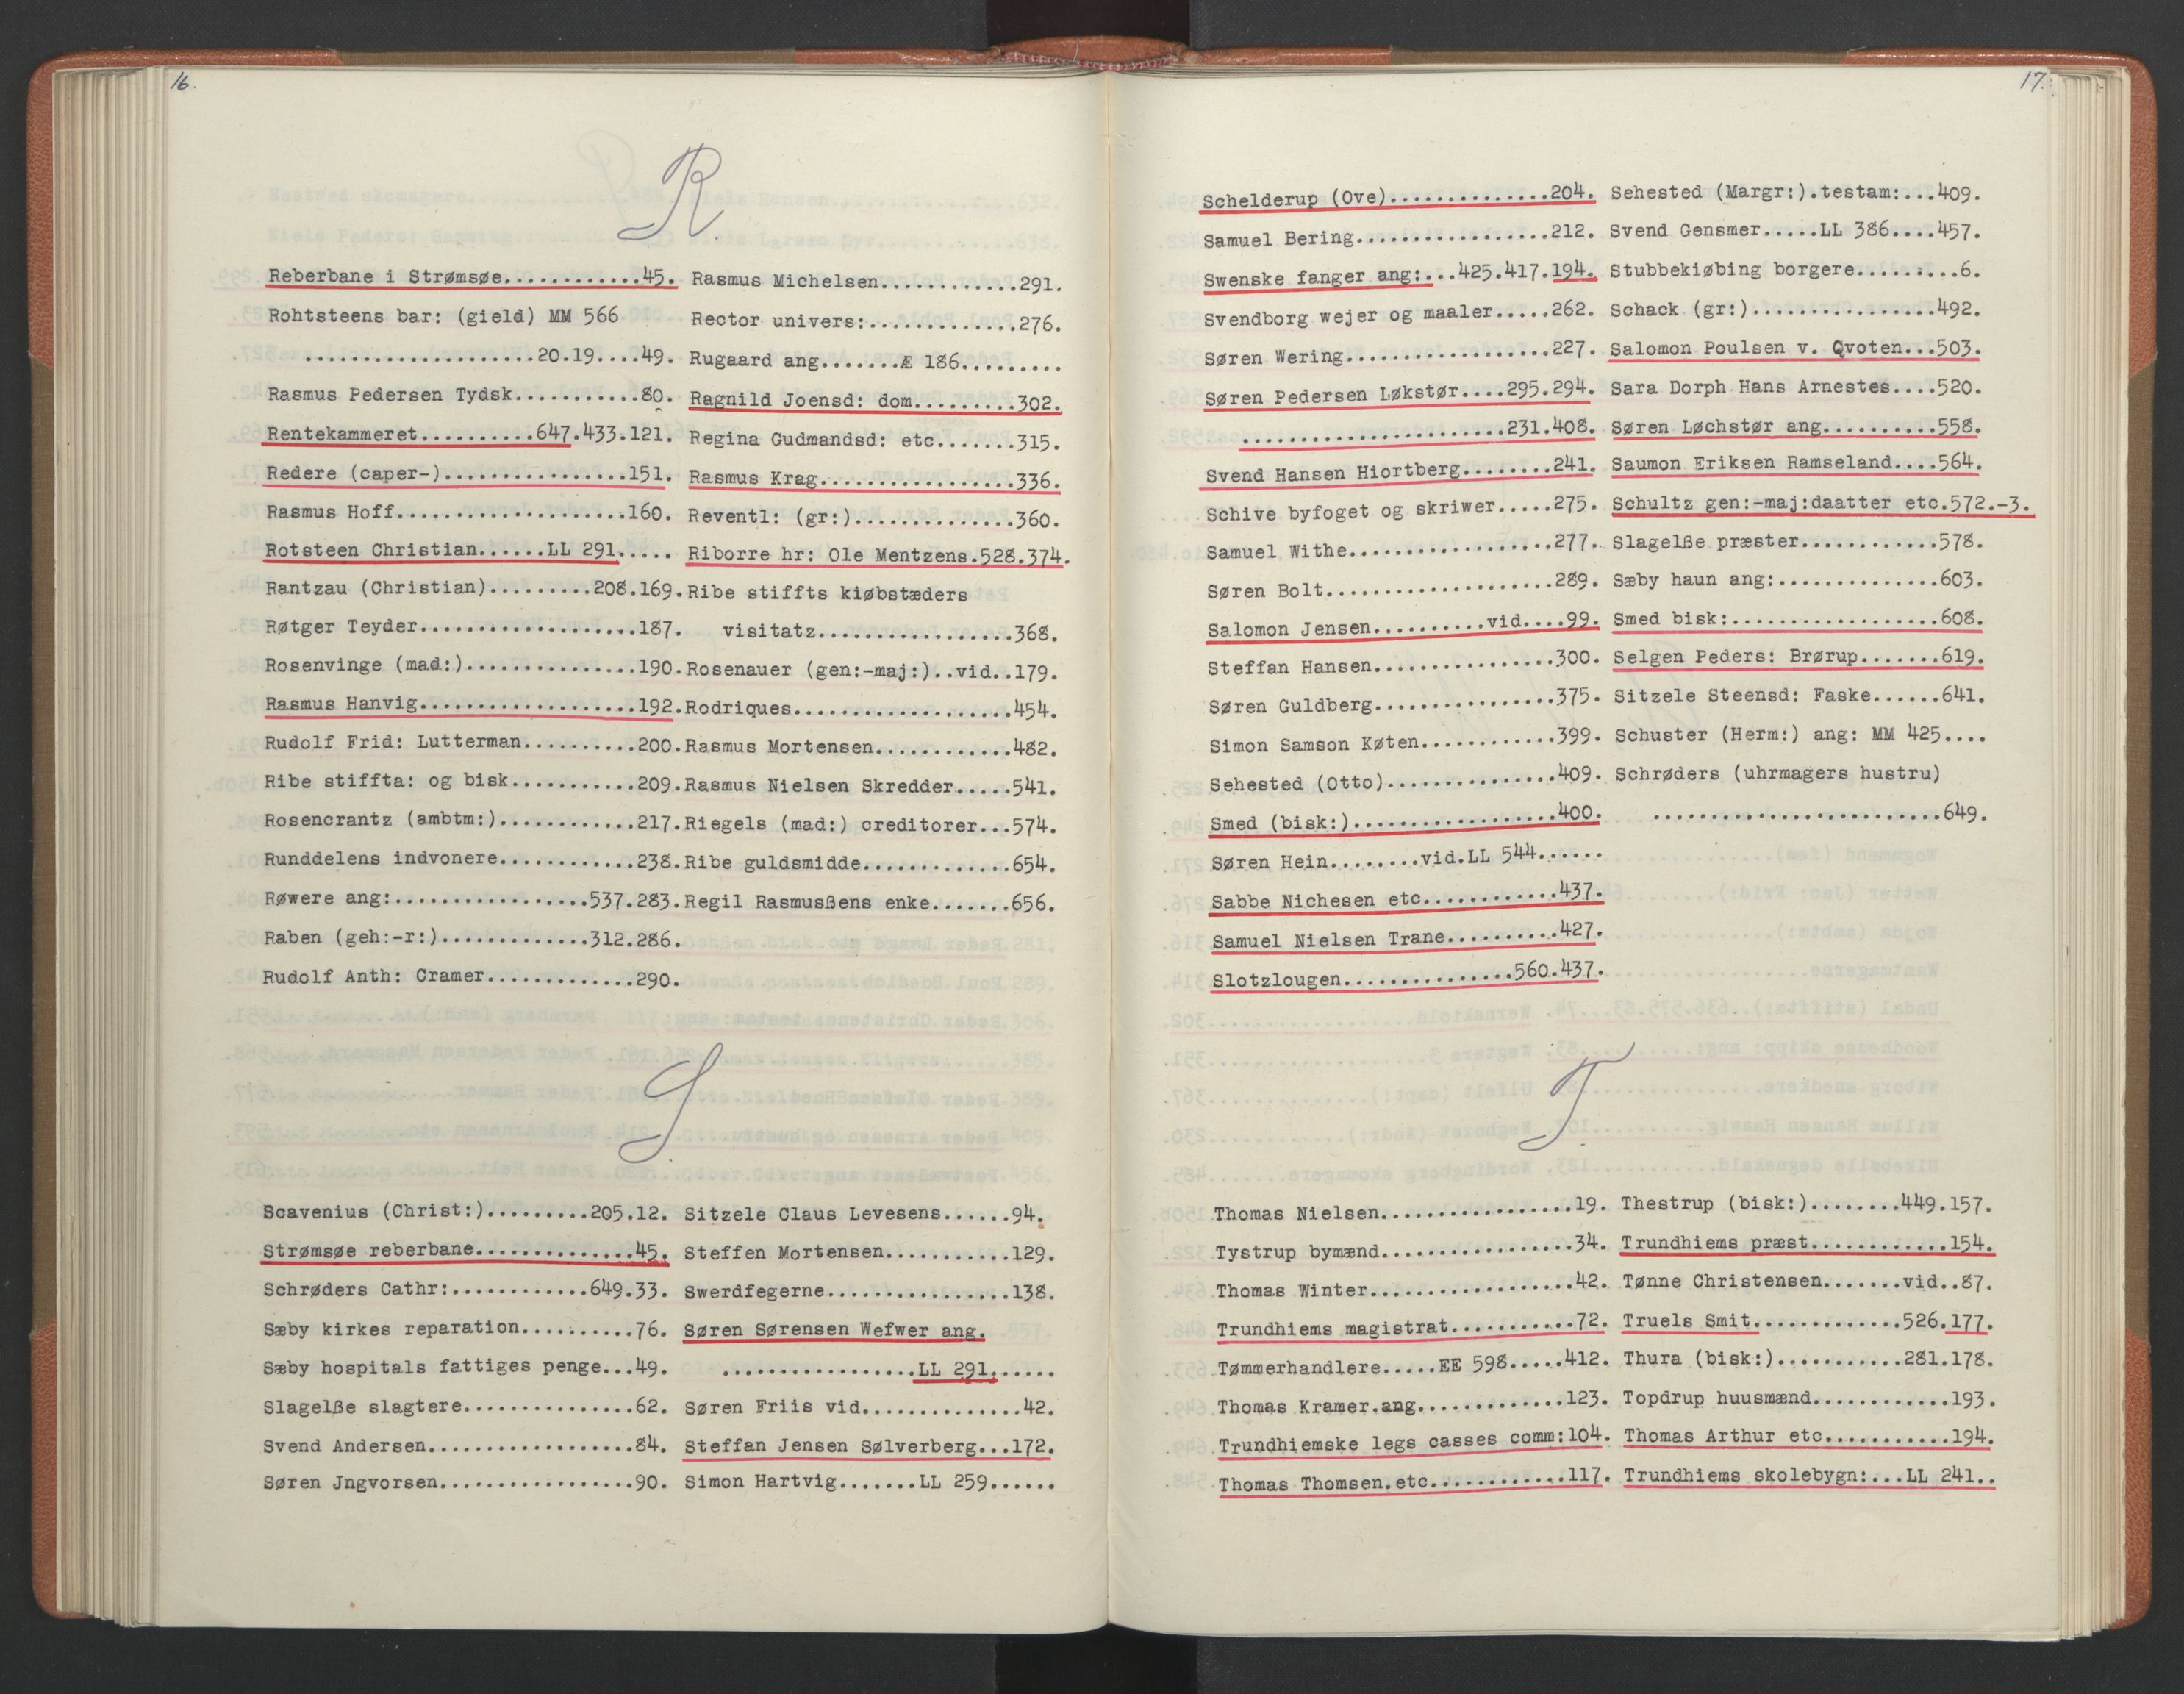 16.
R.
Reberbane i Strømsøe............45.
Rohtsteens bar: (gield) MM 566
....................20.19....49.
Rasmus Pedersen Tydsk...........80.
Rentekammeret..........647.433.121.
Redere (caper-)................151.
Rasmus Hoff....................160.
Rotsteen Christian......LL 291.....
Rantzau (Christian).........208.169.
Røtger Teyder...................187.
Rosenvinge (mad:)...............190.
Rasmus Hanvig...................192.
Rudolf Frid: Lutterman..........200.
Ribe stiffta: og bisk...........209.
Rosencrantz (ambtm:)............217.
Runddelens indvonere............238.
Røwere ang:.................537.283.
Raben (geh:-r:).............312.286.
Rudolf Anth: Cramer.............290.
Rasmus Michelsen............291.
Rector univers:.............276.
Rugaard ang.......Æ 186.........
Ragnild Joensd: dom.........302.
Regina Gudmandsd: etc.......315.
Rasmus Krag.................336.
Reventl: (gr:)..............360.
Riborre hr: Ole Mentzens.528.374.
Ribe stiffts kiøbstæders
visitatz.................368.
Rosenauer (gen:-maj:)..vid..179.
Rodriques...................454.
Rasmus Mortensen............482.
Rasmus Nielsen Skredder.....541.
Riegels (mad:) creditorer...574.
Ribe guldsmidde.............654.
Regil Rasmusßens enke.......656.
S.
Scavenius (Christ:).........205.12.
Strømsøe reberbane..............45.
Schrøders Cathr:............649.33.
Sæby kirkes reparation..........76.
Sæby hospitals fattiges penge...49.
Slagelße slagtere...............62.
Svend Andersen..................84.
Søren Jngvorsen.................90.
Sitzele Claus Levesens......94.
Steffen Mortensen...........129.
Swerdfegerne................138.
Søren Sørensen Wefwer ang.
.................LL 291......
Søren Friis vid..............42.
Steffan Jensen Sølverberg...172.
Simon Hartvig.......LL 259......
17.
Schelderup (Ove)..............204.
Samuel Bering.................212.
Swenske fanger ang:...425.417.194.
Svendborg wejer og maaler.....262.
Søren Wering..................227.
Søren Pedersen Løkstør....295.294.
.......................231.408.
Svend Hansen Hiortberg........241.
Schive byfoget og skriwer.....275.
Samuel Withe..................277.
Søren Bolt....................289.
Salomon Jensen..........vid....99.
Steffan Hansen................300.
Søren Guldberg................375.
Simon Samson Køten............399.
Sehested (Otto)...............409.
Smed (bisk:)..................400.
Søren Hein........vid.LL 544......
Sabbe Nichesen etc............437.
Samuel Nielsen Trane..........427.
Slotzlougen...............560.437.
Sehested (Margr:).testam:...409.
Svend Gensmer.....LL 386....457.
Stubbekiøbing borgere.........6.
Schack (gr:)................492.
Salomon Poulsen v. Qvoten...503.
Sara Dorph Hans Arnestes....520.
Søren Løchstør ang..........558.
Saumon Eriksen Ramseland....564.
Schultz gen:-maj:daatter etc.572.-3.
Slagelße præster............578.
Sæby haun ang:..............603.
Smed bisk:..................608.
Selgen Peders: Brørup.......619.
Sitzele Steensd: Faske......641.
Schuster (Herm:) ang: MM 425....
Schrøders (uhrmagers hustru)
.........................649.
T.
Thomas Nielsen.................19.
Tystrup bymænd.................34.
Thomas Winter..................42.
Trundhiems magistrat...........72.
Tømmerhandlere.....EE 598.....412.
Thomas Kramer.ang.............123.
Trundhiemske legs casses comm:104.
Thomas Thomsen.etc............117.
Thestrup (bisk:)........449.157.
Trundhiems præst............154.
Tønne Christensen.......vid..87.
Truels Smit.............526.177.
Thura (bisk:)...........281.178.
Topdrup huusmænd............193.
Thomas Arthur etc...........194.
Trundhiems skolebygn:...LL 241..